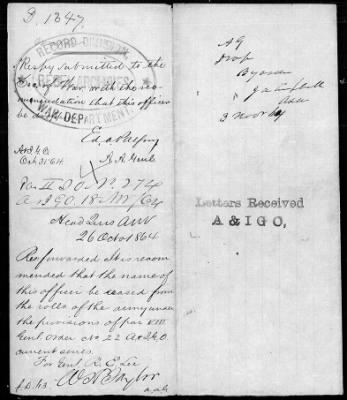 D. 1347.
RECORD DIVISION
REBEL ARCHIVES
WAR DEPARTMENT.
Respy submitted to the
Sec of War, with the rec-
ommendation that this officer
be
Ed. A Palfrey
A. A. Genl
A & I G O
Oct 31/64
Par II S O No. 274
A & I G O. 18 Nov/64
Head Qrs ANV
26 Oct 1864
Resp forwarded. It is recom
mended that the name of
this officer be erased from
the rolls of the army under
the provisions of par VIII
Genl Order No 22 A & I G O
current series.
For Genl R. E. Lee
W H Taylor
a a g
AG
Drop
By order
J A Campbell
3 Nov 64
Letters Received
A & I G O,